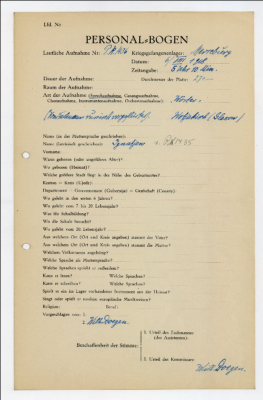 Lfd. Nr
PERSONAL-BOGEN
Lautliche Aufnahme Nr: Kriegsgefangenenlager: Merseburg
Datum:
Zeitangabe:
Dauer der Aufnahme: Durchmesser der Platte:
Raum der Aufnahme:
Art der Aufnahme (Sprechaufnahme, Gesangsaufnahme,
Choraufnahme, Instrumentenaufnahme, Orchesteraufnahme): Wörter.
Name (in der Muttersprache geschrieben):
Name (lateinisch geschrieben):
Vorname:
Wann geboren (oder ungefähres Alter)?
Wo geboren (Heimat)?
Welche größere Stadt liegt in der Nähe des Geburtsortes?
Kanton — Kreis (Ujedz):
Department — Gouvernement (Gubernija) — Grafschaft (County):
Wo gelebt in den ersten 6 Jahren?
Wo gelebt vom 7 bis 20 Lebensjahr?
Was für Schulbildung?
Wo die Schule besucht?
Wo gelebt vom 20 Lebensjahr?
Aus welchem Ort (Ort und Kreis angeben) stammt der Vater?
Aus welchem Ort (Ort und Kreis angeben) stammt die Mutter?
Welchem Volksstamm angehörig?
Welche Sprache als Muttersprache?
Welche Sprachen spricht er außerdem?
Kann er lesen? Welche Sprachen?
Kann er schreiben? Welche Sprachen?
Spielt er ein im Lager vorhandenes Instrument aus der Heimat?
Singt oder spielt er moderne europäische Musikweisen?
Religion: Beruf:
Vorgeschlagen von: 1.
2. Wilh. Doegen.
Beschaffenheit der Stimme:
1. Urteil des Fachmannes
(des Assistenten):
2. Urteil des Kommissars:
Wilh. Doegen.